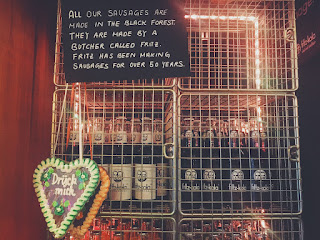 ALL OUR SAUSAGES ARE
MADE IN THE BLACK FOREST.
THEY ARE MADE BY A
BUTCHER CALLED FRITZ.
FRITZ HAS BEEN MAKING
SAUSAGES FOR OVER 50 YEARS.
Drück
mich
fritz-kola
fritz-kola